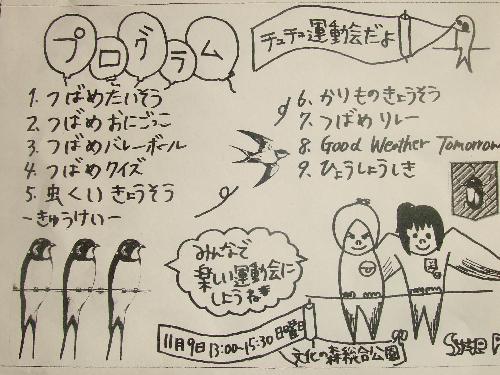 プログラム
チュチュ運動会だよ
1. つばめたいそう
2. つばめおにごっこ
3. つばめバレーボール
4. つばめクイズ
5. 虫くいきょうそう
-きゅうけい-
6. かりものきょうそう
7. つばめリレー
8. Good Weather Tomorrow
9. ひょうしょうしき
みんなで
楽しい運動会に
しようね
11月9日 13:00~15:30 日曜日
文化の森総合公園